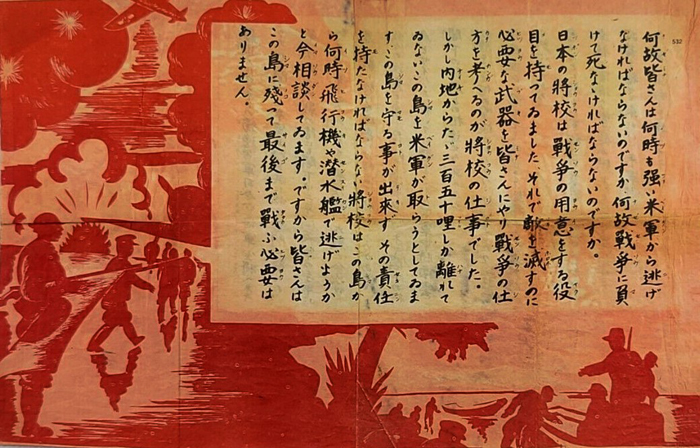 532
何故皆さんは何時も强い米軍から逃げ
なければならないのですか 何故戰爭に負
けて死なゝければならないのですか。
日本の將校は戰爭の用意をする役
目を持つてゐました それで敵を滅すのに
必要な武器を皆さんにやり戰爭の仕
方を考へるのが將校の仕事でした。
しかし内地からたゞ三百五十哩しか離れて
ゐないこの島を米軍が取らうとしてゐま
すこの島を守る事が出來ず その責任
を持たなければならない將校はこの島か
ら何時飛行機や潜水艦で逃げようか
と今相談してゐます。ですから皆さんは
この島に殘つて最後まで戰ふ必要は
ありません。